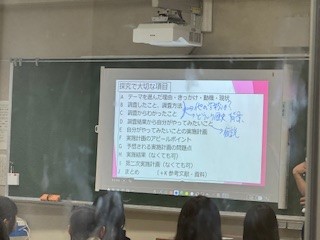 探究で大切な項目
A テーマを選んだ理由・きっかけ・動機・現状
B 調査したこと、調査方法
C 調査からわかったこと
D 調査結果から自分がやってみたいこと
E 自分がやってみたいことの実施計画
F 実施計画のアピールポイント
G 予想される実施計画の問題点
H 実施結果(なくても可)
I 第二次実施計画(なくても可)
J まとめ (+K 参考文献・資料)